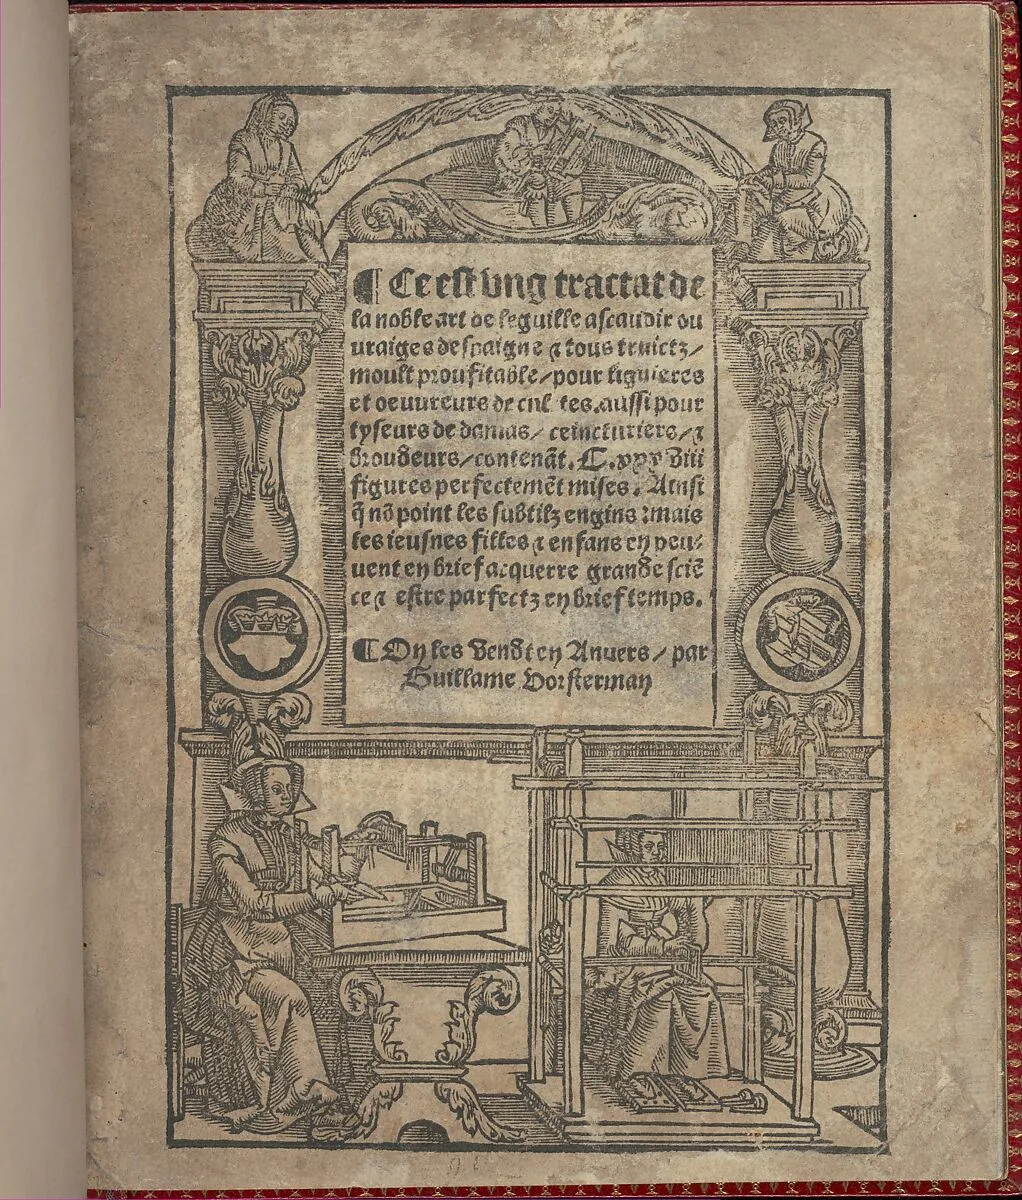 ¶ Ce est vng tractat de
la noble art de leguille ascauoir ou
uraiges de spaigne ⁊ tous
moult proufitable/pour liguieres
et oeuureurs de aussi pour
tyseurs de damas/ ceincturiers/⁊
broudeurs/contenãt. C.xxxviii
figures perfectemẽt mises. Ainsi
q̃ nõ point les subtilz engins :mais
les ieusnes filles ⁊ enfans en peu⸗
uent en brief acquerre grande sciẽ
ce ⁊ estre parfectz en brief temps.
¶ On les vendt en Anuers/ par
Guillame Vorsterman